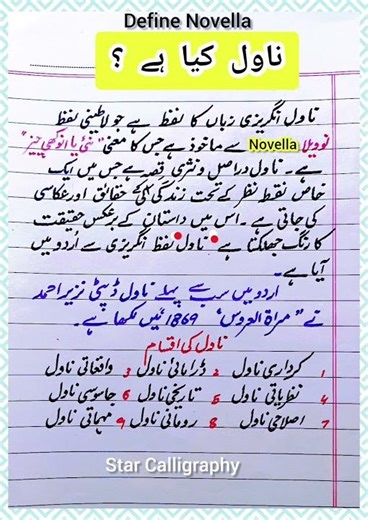 Define Novella
ناول کیا ہے ؟
ناول انگریزی زباں کا لفظ ہے جو لاطینی لفظ
نوویلا Novella سے ماخوذ ہے جس کا معنی "نئی یا انوکھی چیز"
ہے۔ ناول دراصل وہ نثری قصہ ہے جس میں ایک
خاص نقطہ نظر کے تحت زندگی کے حقائق اور عکاسی
کی جاتی ہے۔ اس میں داستان کے برعکس حقیقت
کا رنگ جھلکتا ہے۔ ناول لفظ انگریزی سے اُردو میں
آیا ہے۔
اردو میں سب سے پہلے ناول ڈپٹی نزیر احمد
نے "مراۃ العروس" 1869ء میں لکھا ہے۔
ناول کی اقسام
1 کرداری ناول 2 ڈرامائی ناول 3 واقعاتی ناول
4 نظریاتی ناول 5 تاریخی ناول 6 جاسوسی ناول
7 اصلاحی ناول 8 رومانی ناول 9 مہماتی ناول
Star Calligraphy